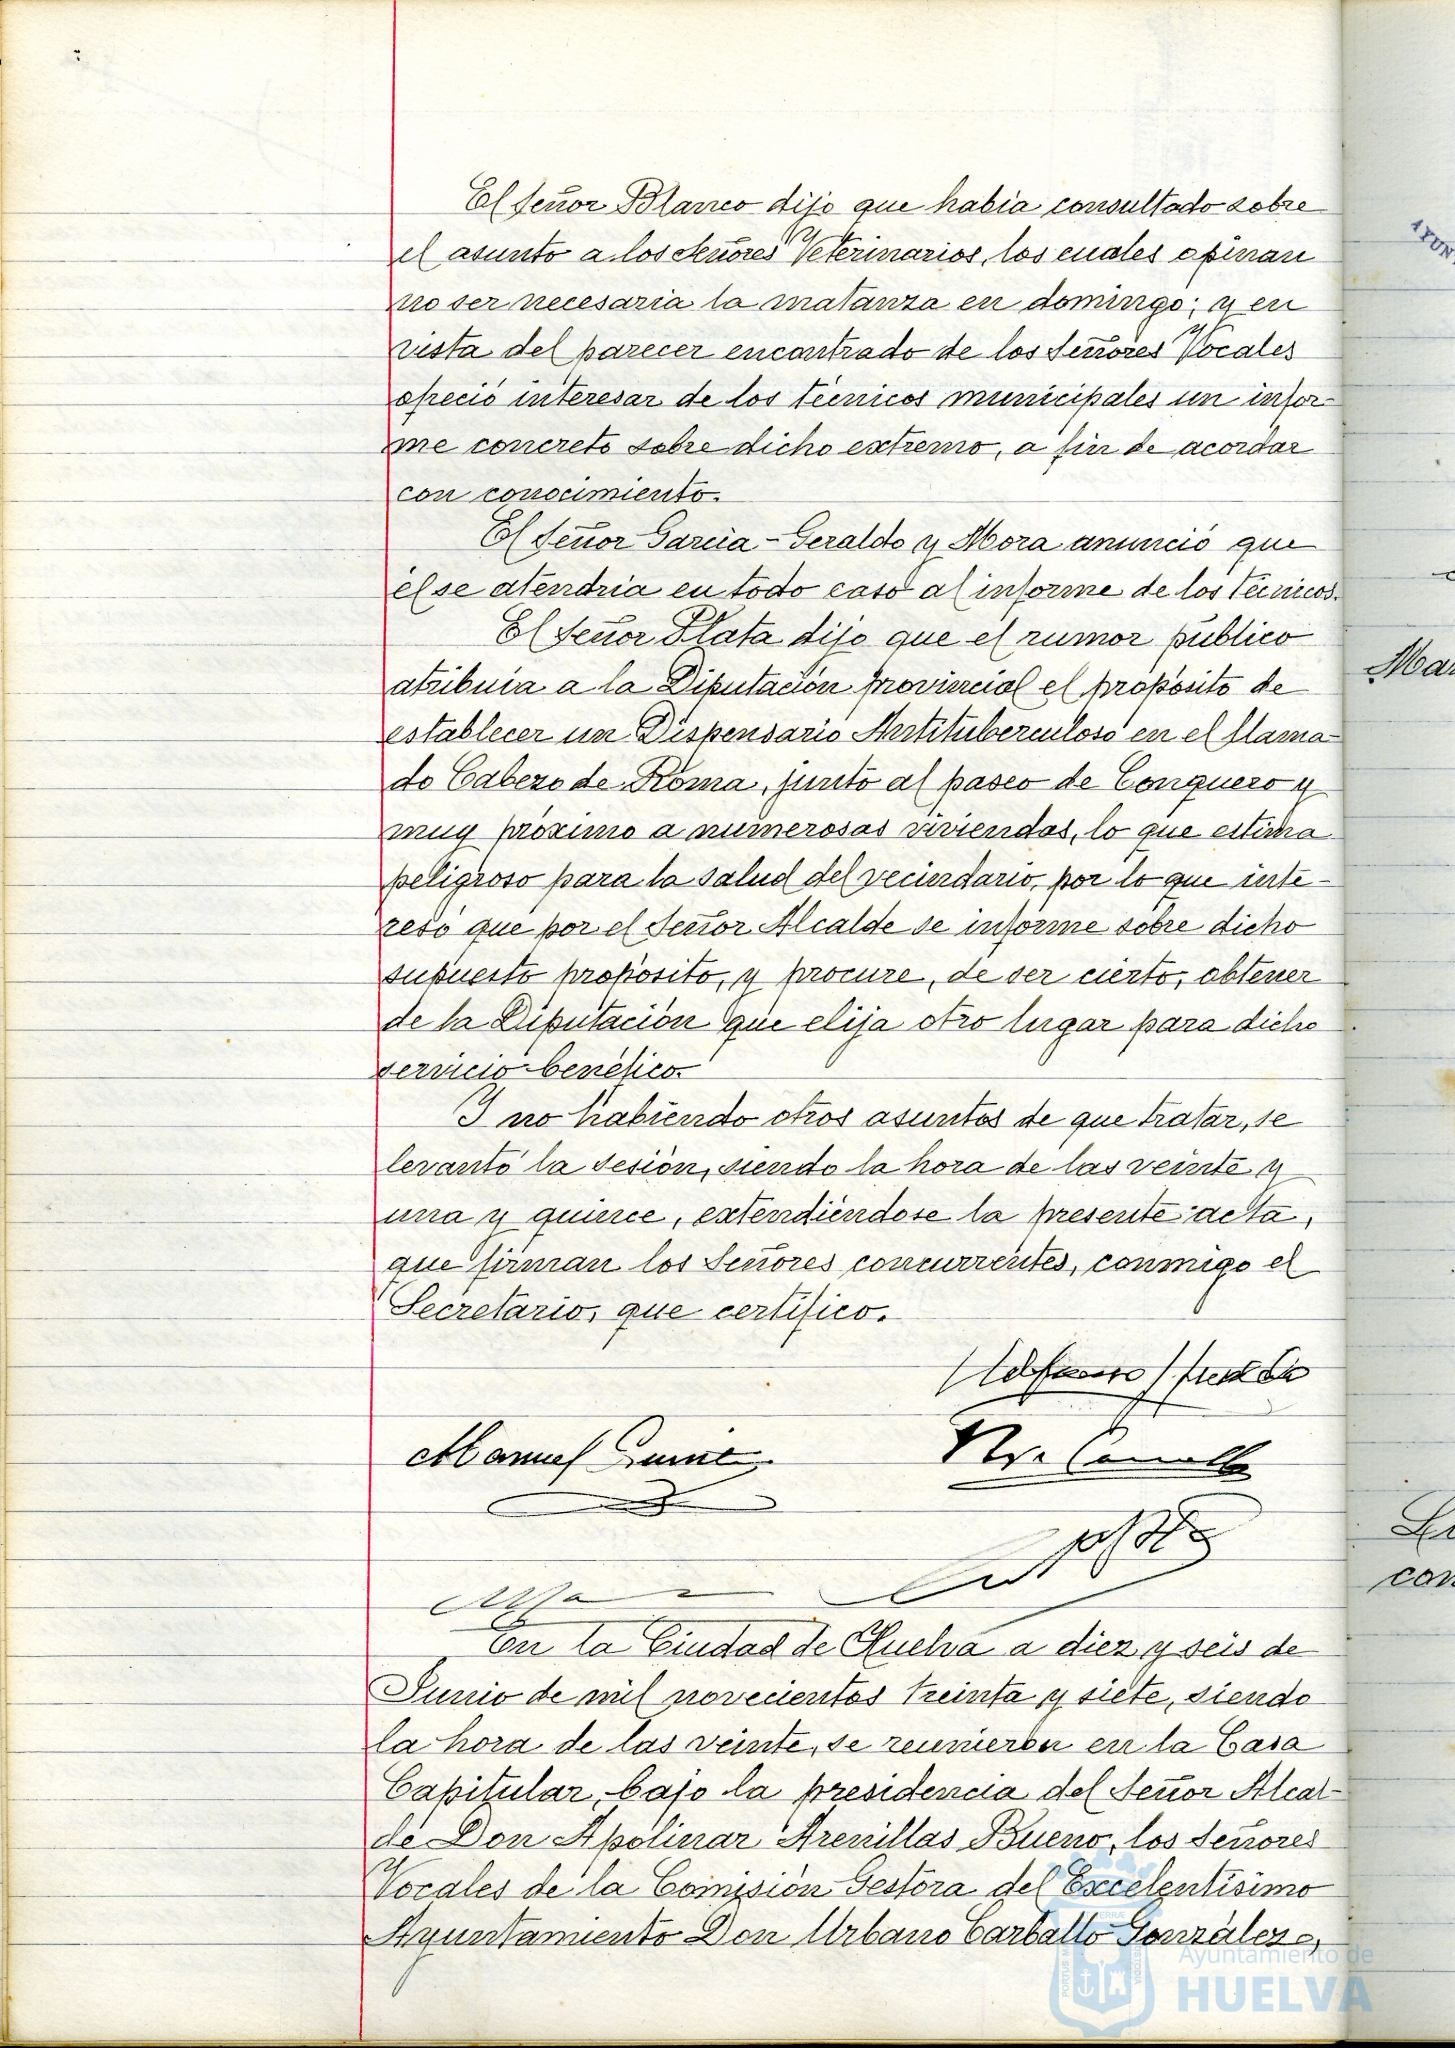 El Señor Blanco dijo que había consultado sobre
el asunto a los Señores Veterinarios, los cuales opinan
no ser necesaria la matanza en domingo; y en
vista del parecer encontrado de los Señores Vocales
ofreció interesar de los técnicos municipales un infor-
me concreto sobre dicho extremo, a fin de acordar
con conocimiento.
El Señor García-Geraldo y Mora anunció que
él se atendría en todo caso al informe de los técnicos.
El Señor Plata dijo que el rumor público
atribuía a la Diputación provincial el propósito de
establecer un Dispensario Antituberculoso en el llama-
do Cabezo de Roma, junto al paseo de Conquero y
muy próximo a numerosas viviendas, lo que estima
peligroso para la salud del vecindario, por lo que inte-
resó que por el Señor Alcalde se informe sobre dicho
supuesto propósito, y procure, de ser cierto, obtener
de la Diputación que elija otro lugar para dicho
servicio benéfico.
Y no habiendo otros asuntos de que tratar, se
levantó la sesión, siendo la hora de las veinte y
una y quince, extendiéndose la presente acta,
que firman los Señores concurrentes, conmigo el
Secretario, que certifico.
Manuel
En la Ciudad de Huelva a diez y seis de
Junio de mil novecientos treinta y siete, siendo
la hora de las veinte, se reunieron en la Casa
Capitular, bajo la presidencia del Señor Alcal-
de Don Apolinar Arenillas Bueno, los Señores
Vocales de la Comisión Gestora del Excelentísimo
Ayuntamiento Don Urbano Carballo González,
Ayuntamiento de
HUELVA